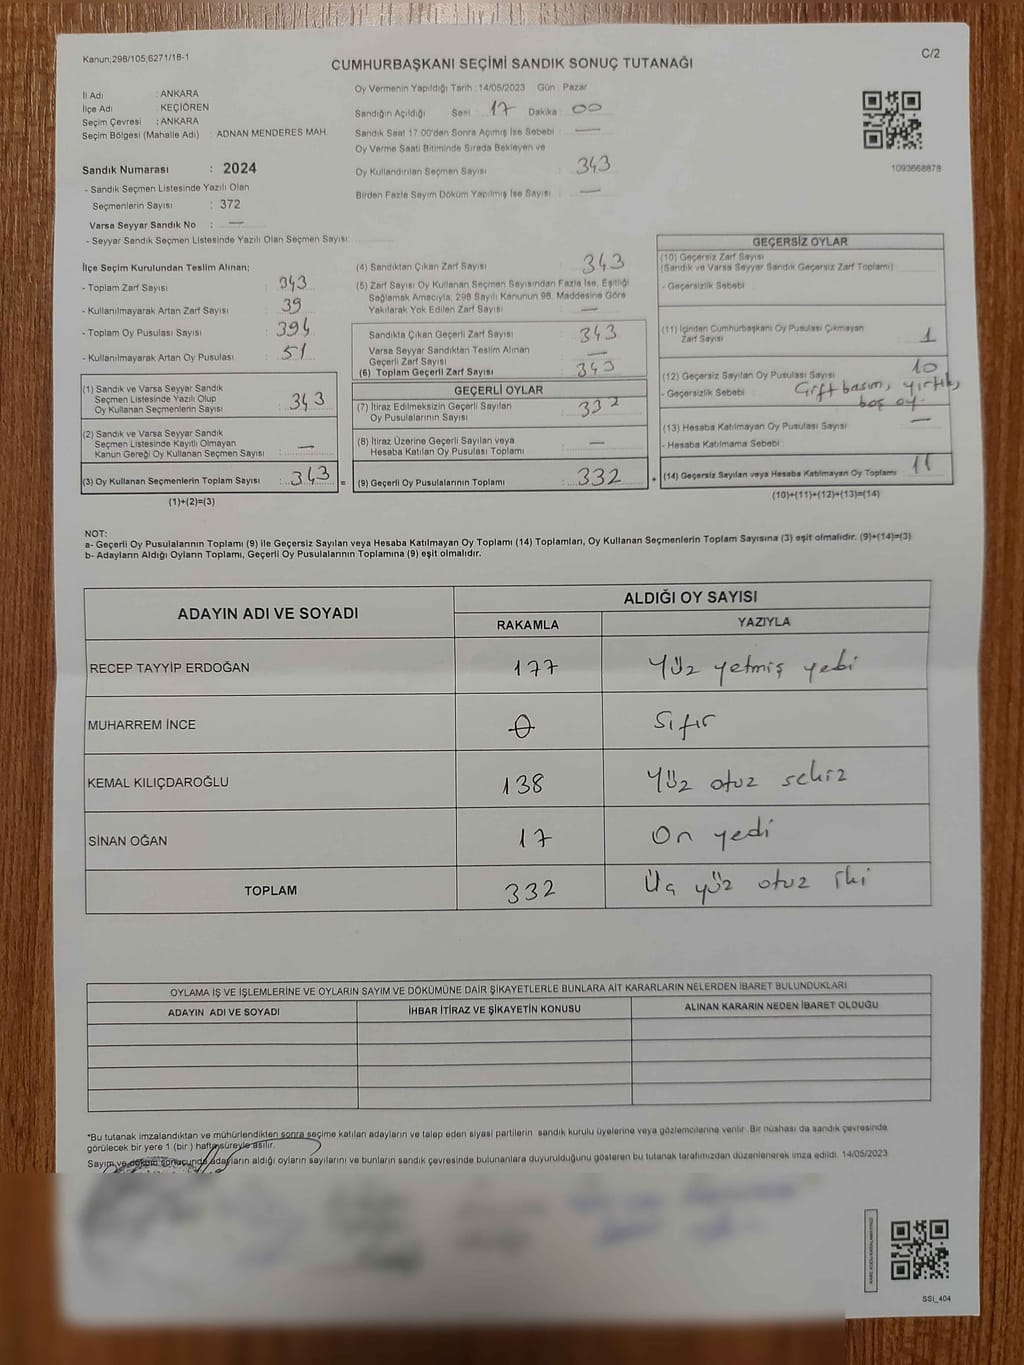 Kanun;298/105;6271/18-1
C/2
CUMHURBAŞKANI SEÇİMİ SANDIK SONUÇ TUTANAĞI
İl Adı : ANKARA
İlçe Adı : KEÇİÖREN
Seçim Çevresi : ANKARA
Seçim Bölgesi (Mahalle Adı) : ADNAN MENDERES MAH.
Sandık Numarası : 2024
- Sandık Seçmen Listesinde Yazılı Olan
Seçmenlerin Sayısı : 372
Varsa Seyyar Sandık No : —
- Seyyar Sandık Seçmen Listesinde Yazılı Olan Seçmen Sayısı:
Oy Vermenin Yapıldığı Tarih : 14/05/2023 Gün : Pazar
Sandığın Açıldığı Saat : 17 Dakika : 00
Sandık Saat 17.00'den Sonra Açılmış İse Sebebi : —
Oy Verme Saati Bitiminde Sırada Bekleyen ve
Oy Kullandırılan Seçmen Sayısı : 343
Birden Fazla Sayım Döküm Yapılmış İse Sayısı : —
1093668878
İlçe Seçim Kurulundan Teslim Alınan;
- Toplam Zarf Sayısı : 343
- Kullanılmayarak Artan Zarf Sayısı : 39
- Toplam Oy Pusulası Sayısı : 394
- Kullanılmayarak Artan Oy Pusulası : 51
(1) Sandık ve Varsa Seyyar Sandık
Seçmen Listesinde Yazılı Olup
Oy Kullanan Seçmenlerin Sayısı : 343
(2) Sandık ve Varsa Seyyar Sandık
Seçmen Listesinde Kayıtlı Olmayan
Kanun Gereği Oy Kullanan Seçmen Sayısı : —
(3) Oy Kullanan Seçmenlerin Toplam Sayısı : 343 =
(1)+(2)=(3)
(4) Sandıktan Çıkan Zarf Sayısı : 343
(5) Zarf Sayısı Oy Kullanan Seçmen Sayısından Fazla İse, Eşitliği
Sağlamak Amacıyla, 298 Sayılı Kanunun 98. Maddesine Göre
Yakılarak Yok Edilen Zarf Sayısı : —
Sandıkta Çıkan Geçerli Zarf Sayısı : 343
Varsa Seyyar Sandıktan Teslim Alınan
Geçerli Zarf Sayısı : —
(6) Toplam Geçerli Zarf Sayısı : 343
GEÇERLİ OYLAR
(7) İtiraz Edilmeksizin Geçerli Sayılan
Oy Pusulalarının Sayısı : 332
(8) İtiraz Üzerine Geçerli Sayılan veya
Hesaba Katılan Oy Pusulası Toplamı : —
(9) Geçerli Oy Pusulalarının Toplamı : 332 +
GEÇERSİZ OYLAR
(10) Geçersiz Zarf Sayısı
(Sandık ve Varsa Seyyar Sandık Geçersiz Zarf Toplamı) :
- Geçersizlik Sebebi :
(11) İçinden Cumhurbaşkanı Oy Pusulası Çıkmayan
Zarf Sayısı : 1
(12) Geçersiz Sayılan Oy Pusulası Sayısı : 10
- Geçersizlik Sebebi : Çift basım, yırtık,
boş oy
(13) Hesaba Katılmayan Oy Pusulası Sayısı : —
- Hesaba Katılmama Sebebi :
(14) Geçersiz Sayılan veya Hesaba Katılmayan Oy Toplamı : 11
(10)+(11)+(12)+(13)=(14)
NOT:
a- Geçerli Oy Pusulalarının Toplamı (9) ile Geçersiz Sayılan veya Hesaba Katılmayan Oy Toplamı (14) Toplamları, Oy Kullanan Seçmenlerin Toplam Sayısına (3) eşit olmalıdır. (9)+(14)=(3)
b- Adayların Aldığı Oyların Toplamı, Geçerli Oy Pusulalarının Toplamına (9) eşit olmalıdır.
ADAYIN ADI VE SOYADI ALDIĞI OY SAYISI
RAKAMLA YAZIYLA
RECEP TAYYİP ERDOĞAN 177 Yüz yetmiş yedi
MUHARREM İNCE 0 Sıfır
KEMAL KILIÇDAROĞLU 138 Yüz otuz sekiz
SİNAN OĞAN 17 On yedi
TOPLAM 332 Üç yüz otuz iki
OYLAMA İŞ VE İŞLEMLERİNE VE OYLARIN SAYIM VE DÖKÜMÜNE DAİR ŞİKAYETLERLE BUNLARA AİT KARARLARIN NELERDEN İBARET BULUNDUKLARI
ADAYIN ADI VE SOYADI İHBAR İTİRAZ VE ŞİKAYETİN KONUSU ALINAN KARARIN NEDEN İBARET OLDUĞU
*Bu tutanak imzalandıktan ve mühürlendikten sonra seçime katılan adayların ve talep eden siyasi partilerin sandık kurulu üyelerine veya gözlemcilerine verilir. Bir nüshası da sandık çevresinde
görülecek bir yere 1 (bir ) hafta süreyle asılır.
Sayım ve döküm sonucunda adayların aldığı oyların sayılarını ve bunların sandık çevresinde bulunanlara duyurulduğunu gösteren bu tutanak tarafımızdan düzenlenerek imza edildi. 14/05/2023
SSI_404